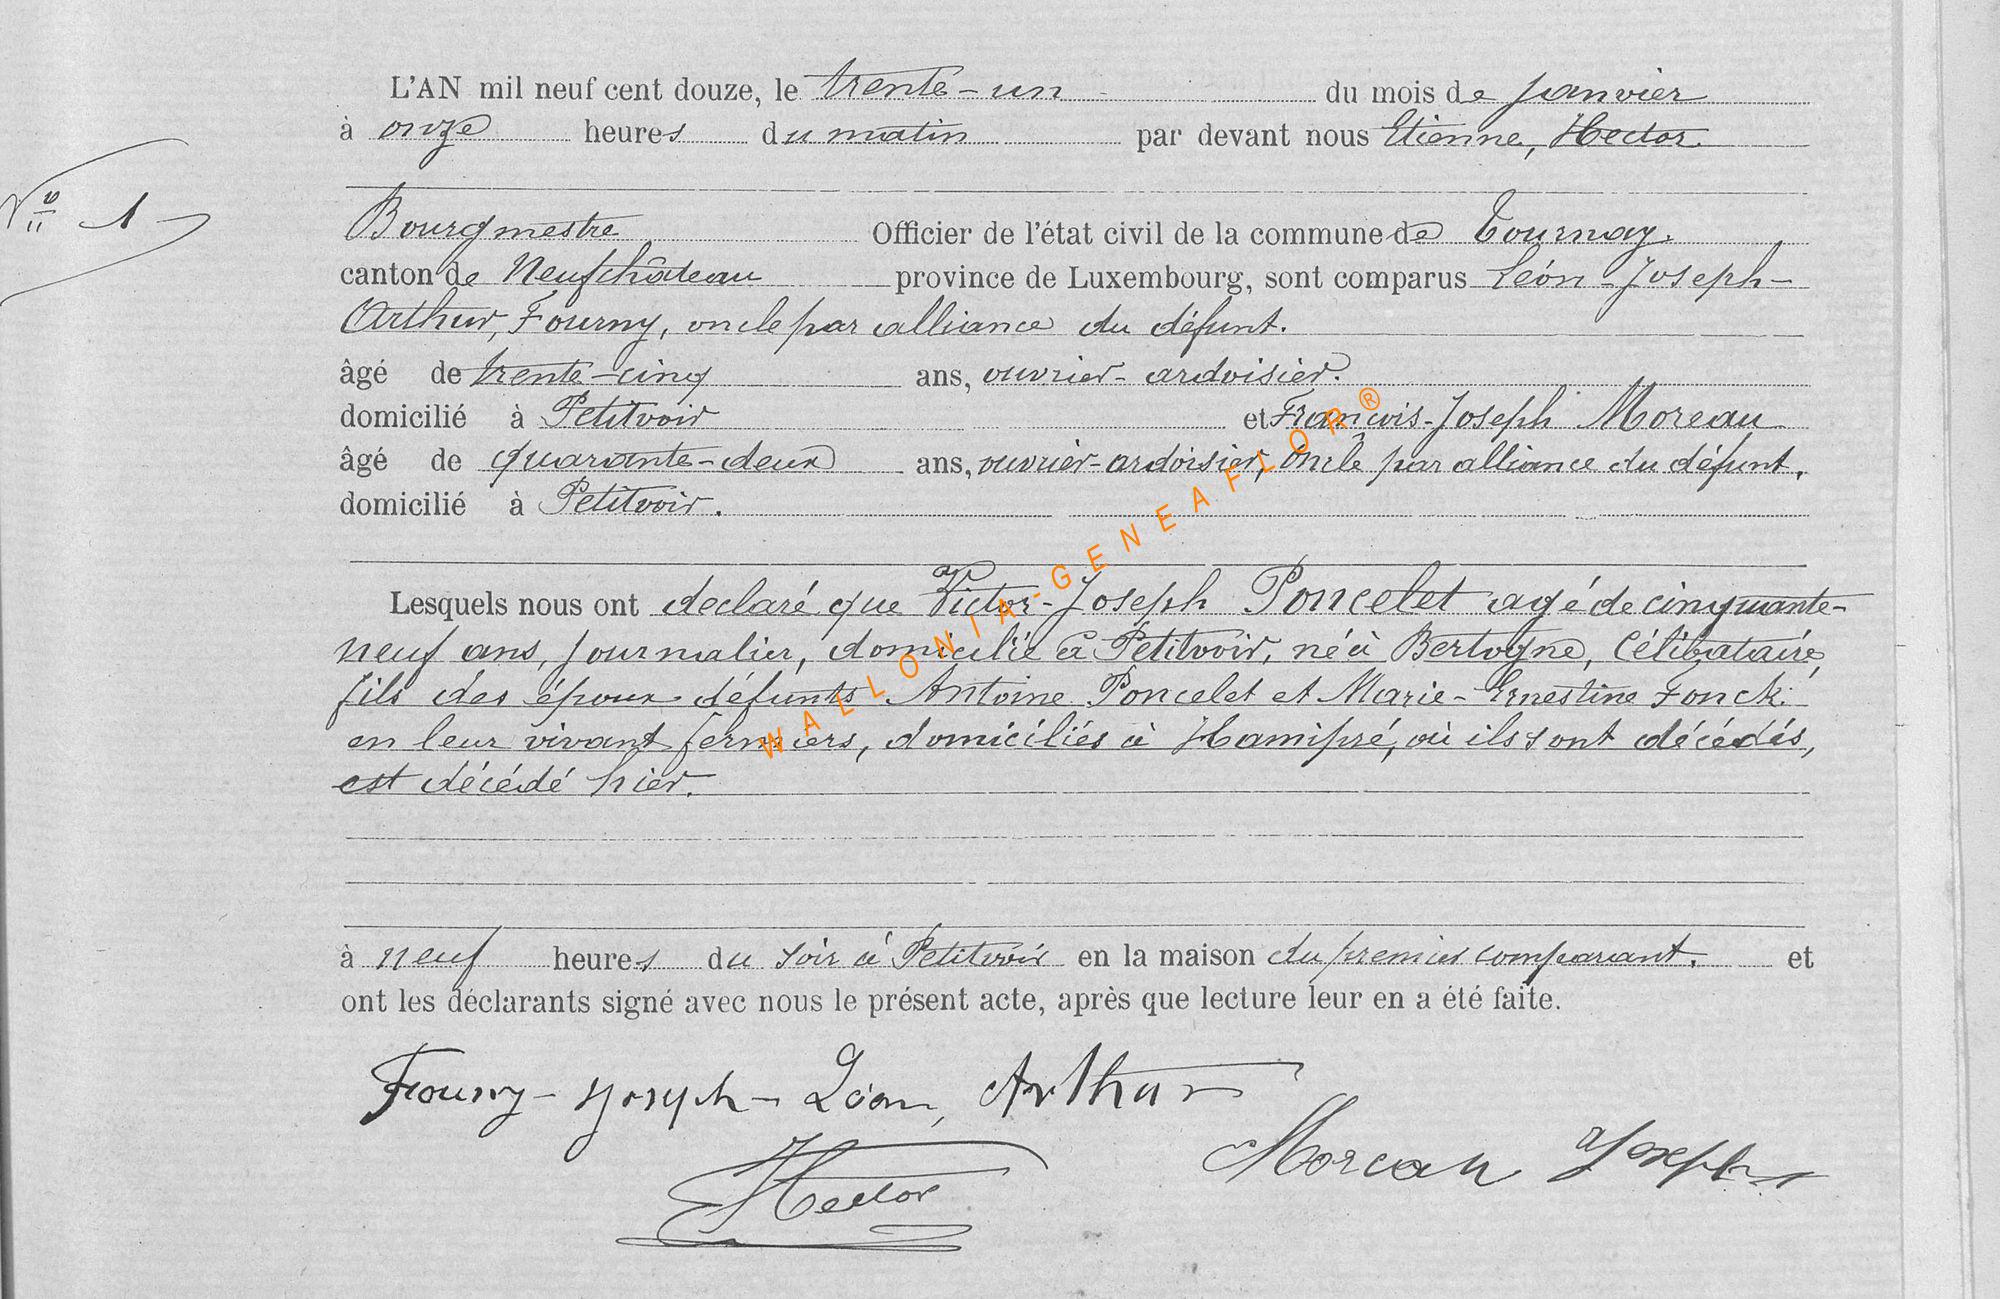 L'AN mil neuf cent douze, le trente-un du mois de janvier
à onze heures du matin par devant nous Etienne, Hector
N° 1
Bourgmestre Officier de l'état civil de la commune de Tournay.
canton de Neufchâteau province de Luxembourg, sont comparus Léon-Joseph-
Arthur, Fourny, oncle par alliance du défunt.
âgé de trente-cinq ans, ouvrier-ardoisier.
domicilié à Petitvoir et François-Joseph Moreau
âgé de quarante-deux ans, ouvrier-ardoisier, oncle par alliance du défunt.
domicilié à Petitvoir.
WALLONIA-GENEAFLOR®
Lesquels nous ont declaré que Victor-Joseph Poncelet agé de cinquante-
neuf ans, journalier, domicilié à Petitvoir, né à Bertogne, Célibataire,
fils des époux défunts Antoine Poncelet et Marie-Ernestine Fonck.
en leur vivant fermiers, domiciliés à Hamipré, où ils sont décédés,
est décédé hier.
à neuf heures du soir à Petitvoir en la maison du premier comparant. et
ont les déclarants signé avec nous le présent acte, après que lecture leur en a été faite.
Fourny-Joseph-Léon, Arthur
Moreau Joseph
Hector